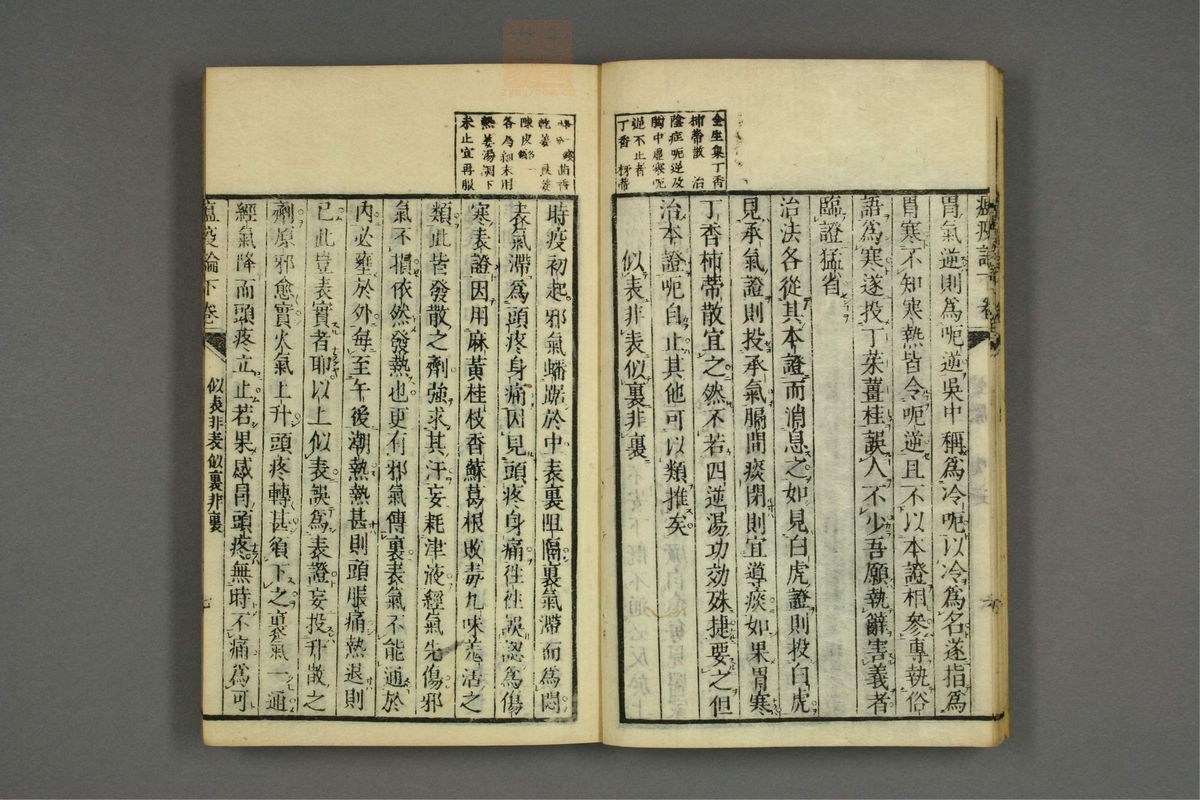 胃氣逆則爲呃逆吳中稱爲冷呃以冷爲名遂指爲
胃寒不知寒熱皆令呃逆且不以本證相參專執俗
語爲寒遂投丁茱薑桂誤人不少吾願執辭害義者
臨證猛省
治法各從其本證而消息之如見白虎證則投白虎
見承氣證則投承氣膈間痰閉則宜導痰如果胃寒
丁香柿蒂散宜之然不若四逆湯功効殊捷要之但
治本證呃自止其他可以類推矣
似表非表似裏非裏
全生集丁香
柿蒂散 治
陰症呃逆及
胸中虛寒呃
逆不止者
丁香 柿蒂
茴香
乾姜 良姜
陳皮
各爲細末用
熱姜湯調下
未止宜再服
時疫初起邪氣蟠踞於中表裏阻隔裏氣滯而爲悶
表氣滯爲頭疼身痛因見頭疼身痛往往誤認爲傷
寒表證因用麻黃桂枝香蘇葛根敗毒九味羌活之
類此皆發散之劑強求其汗妄耗津液經氣先傷邪
氣不損依然發熱也更有邪氣傳裏表氣不能通於
內必壅於外每至午後潮熱熱甚則頭脹痛熱退則
已此豈表實者耶以上似表誤爲表證妄投升散之
劑原邪愈實火氣上升頭疼轉甚須下之裏氣一通
經氣降而頭疼立止若果感冒頭疼無時不痛爲可
瘟疫論下卷
似表非表似裏非裏